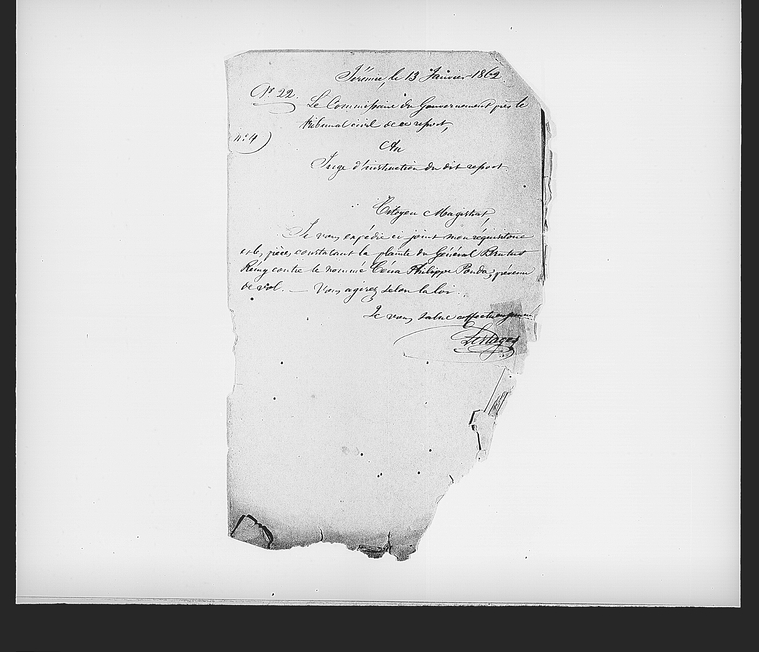 Jérémie, le 13 Janvier 1862
N° 22.
Le Commissaire du Gouvernement près le
tribunal civil de ce ressort,
n° 4)
Au
Juge d'instruction du dit ressort
Citoyen Magistrat,
Je vous expédie ci joint mon réquisitoire
et les pièces constatant la plainte du Général Brutus
Rémy contre le nommé Philippe prévenu
de vol. — Vous agirez selon la loi.
Je vous salue affectueusement